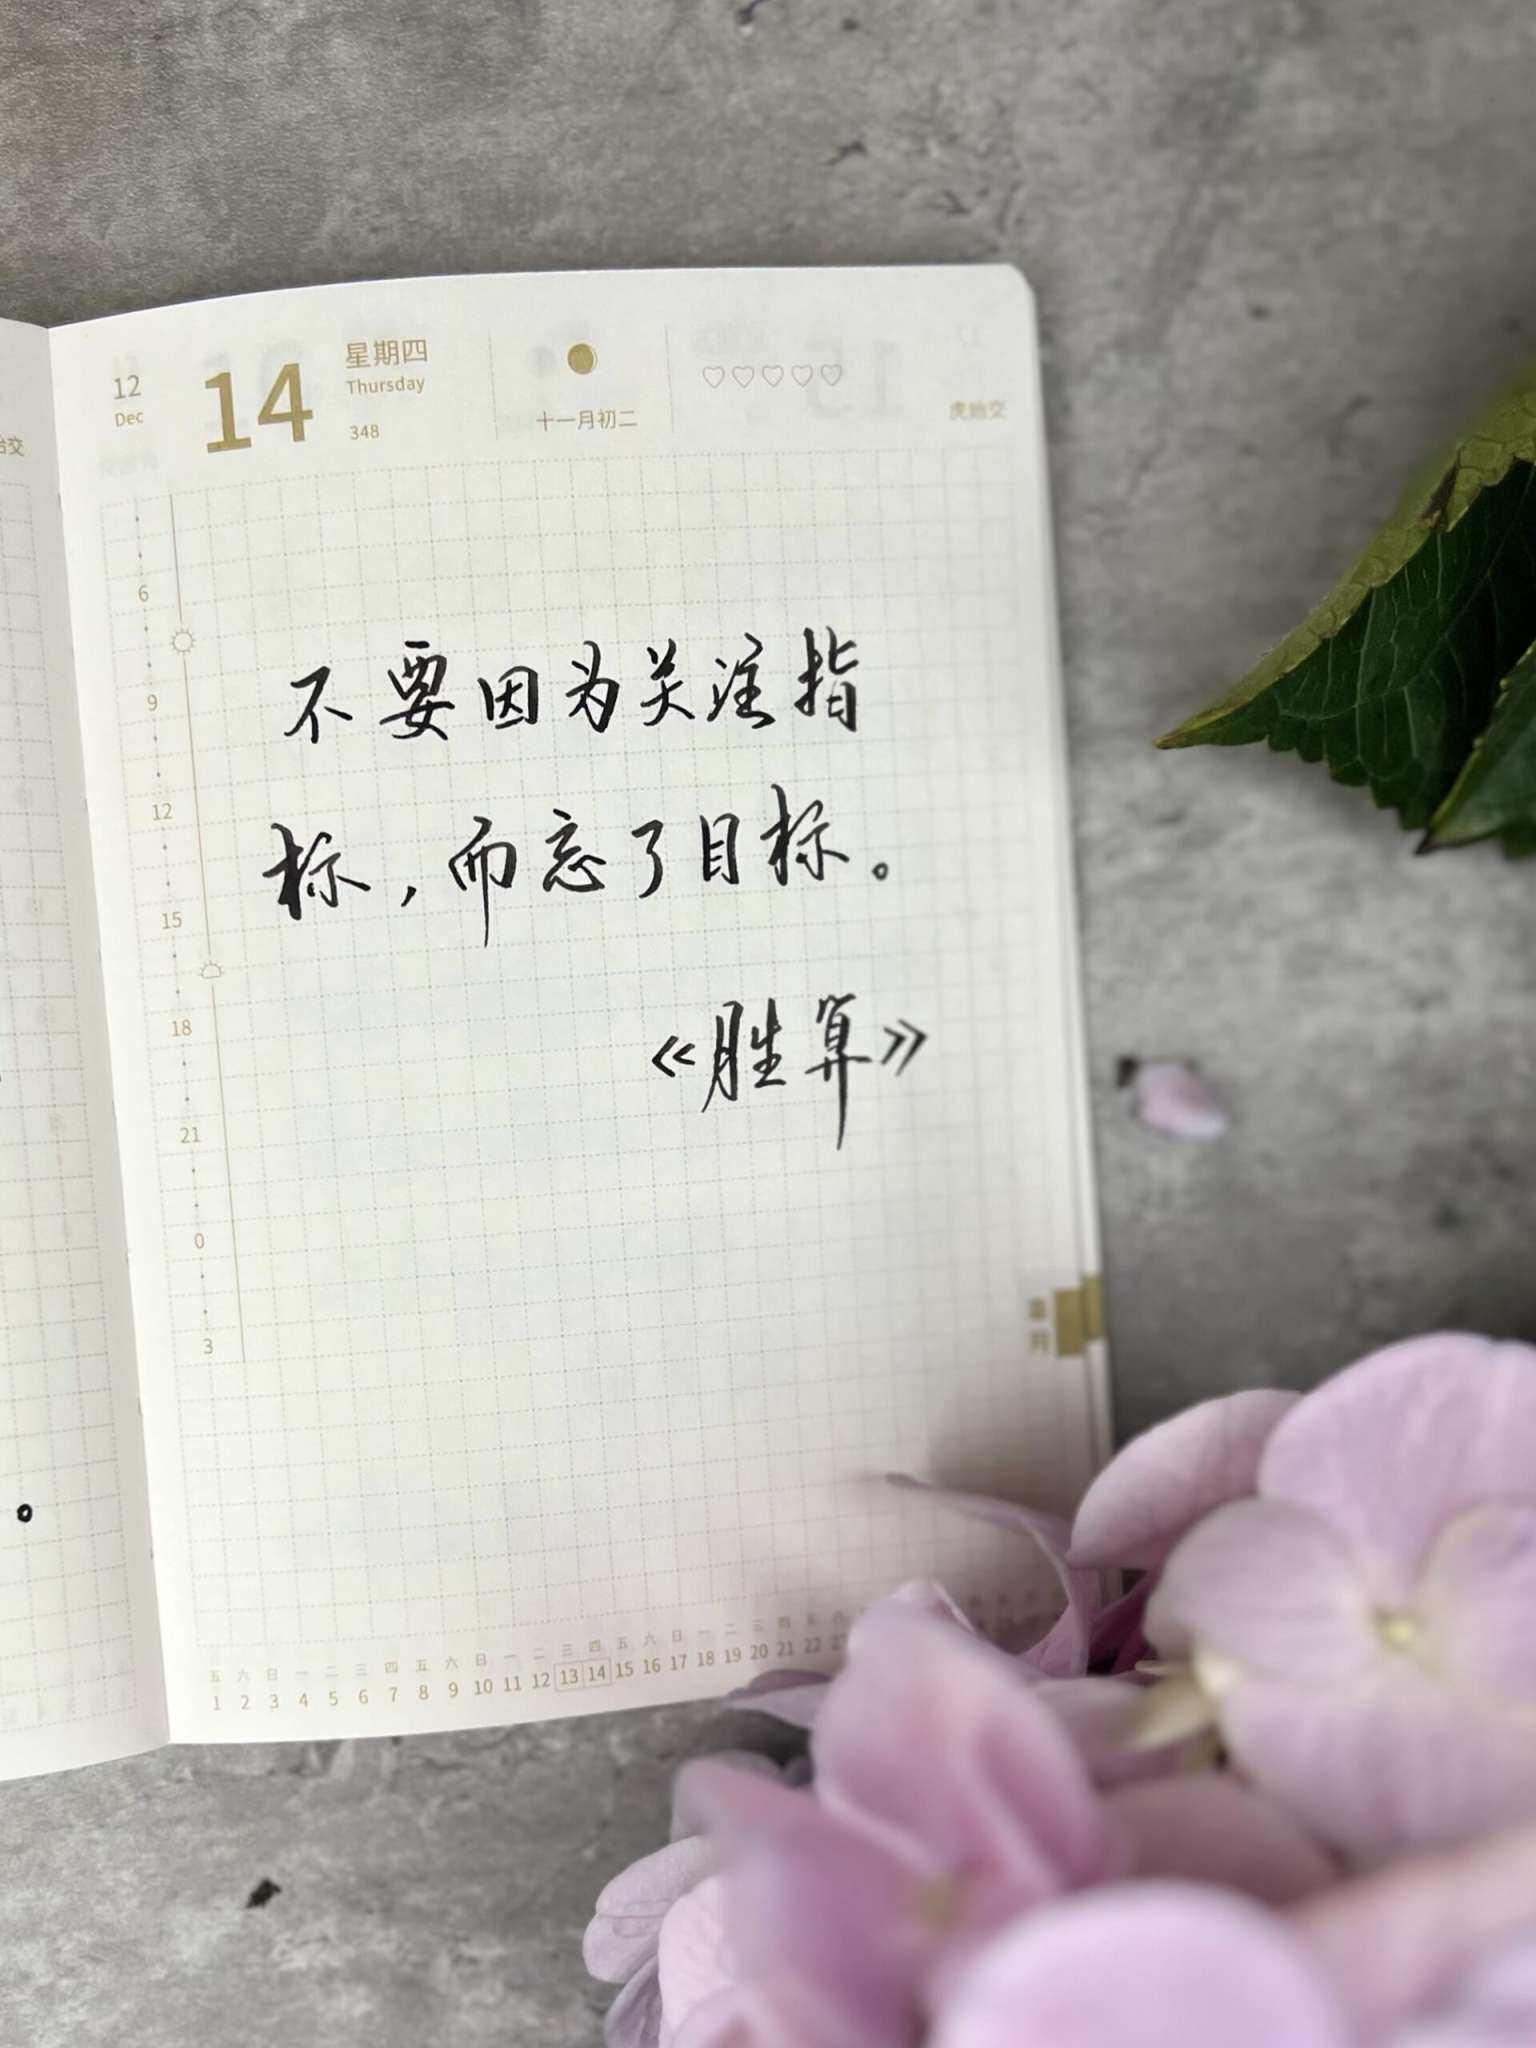 12
Dec
14
星期四
Thursday
348
十一月初二
虎始交
始交
6
9
12
15
18
21
0
3
不要因为关注指
标，而忘了目标。
《胜算》
五 六 日 一 二 三 四 五 六 日 一 二 三 四 五 六 日 一 二 三 四 五 六
1 2 3 4 5 6 7 8 9 10 11 12 13 14 15 16 17 18 19 20 21 22 23